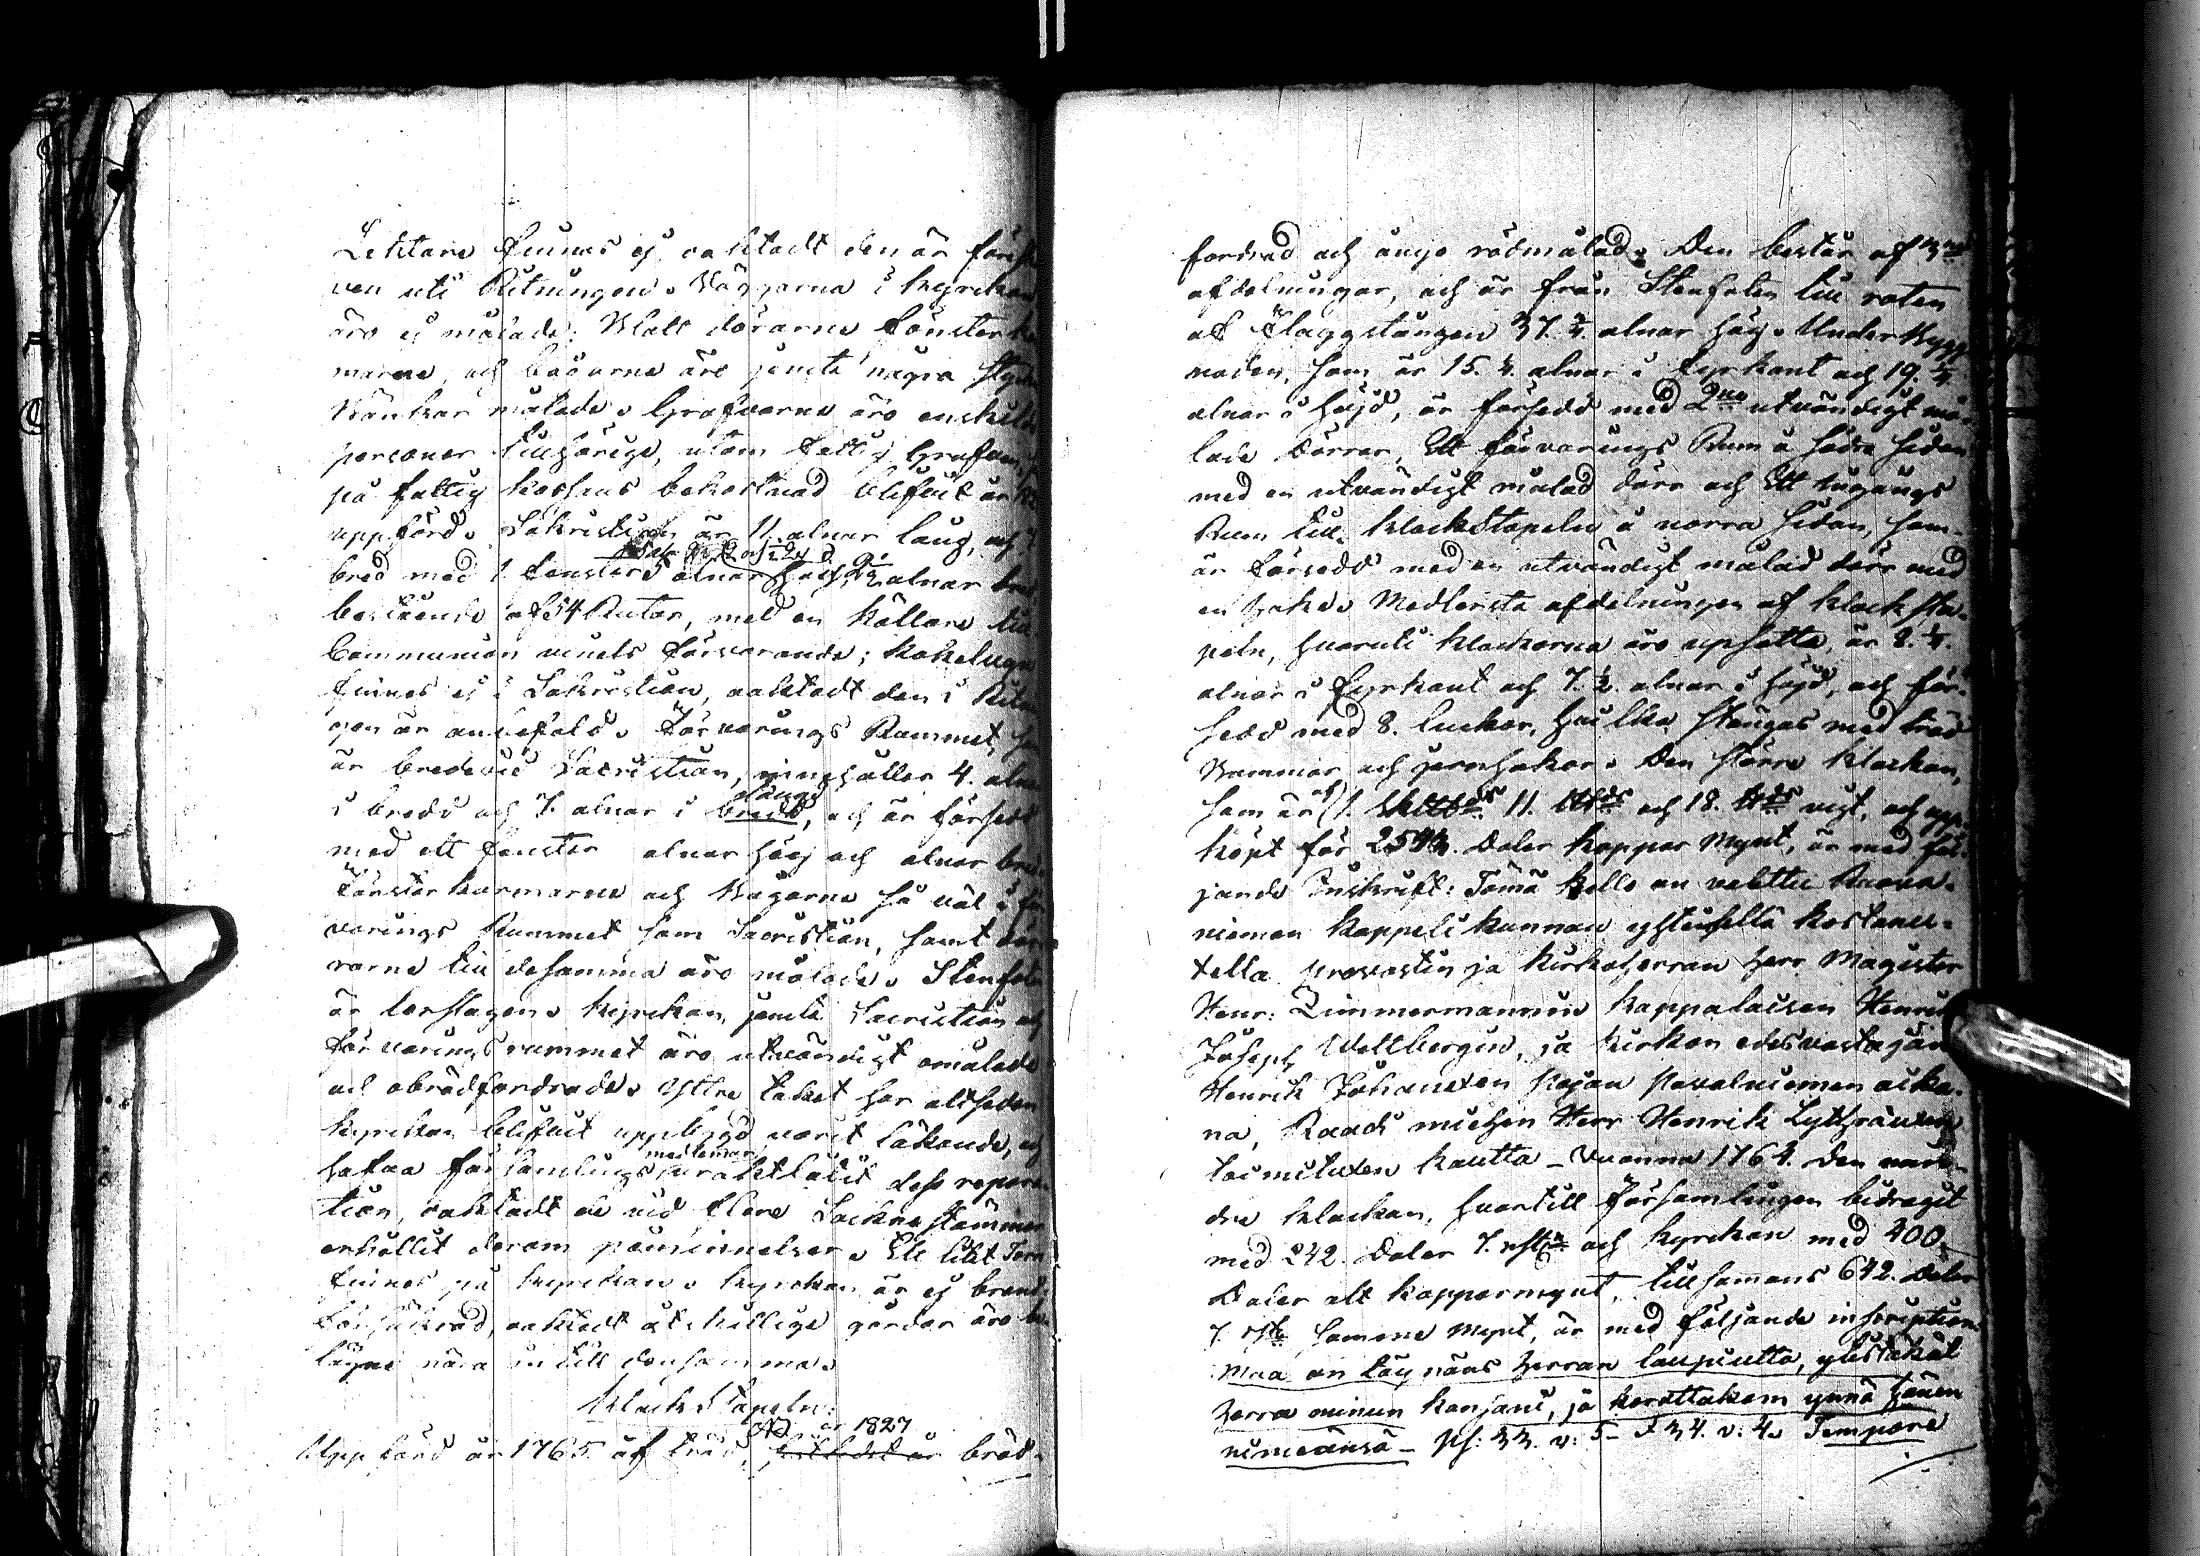 Lektare finnes ej, oaktadt den är föresk
ven uti Ritningen. Väggarna i kyrckan
äro ej målade: Matt dörarne fönster ka
marne, och bågarne äro jemte några styken
Bänkar målade. Grafvarne äro enskilda
personer tillhörige, utom fattig Grafven,
på fattig kassans bekostnad blifvit år
uppförd. Sakristian är 11. alnar lång, och 7
bred med 1. fenster alnar hög 2½ alnar bred
bestående af 54 Rutor, med en källare till
Communion vinets förvarande; kakelugn
finnes ej i Sakristian, oaktadt den i Ritn
gen är anbefald. Förvarings Rummet, som
är bredevid Sacristian, innehåller 4. alnar
i bredd och 7. alnar i bredd, längd och är försedt
med ett fenster alnar hög och alnar bred.
Fönster karmarne och Bågarne så väl i för
varings Rummet som Sacristian, samt dör
rarne till desamma äro målade. Stenfoten
är lerslagen. Kyrckan, jemte Sacristian och
förvarings rummet äro utvändigt omålade
och obrädfordrade. Yttre taket har altsedan
kyrckan blifvit uppbygd varit läkande, och
hafva församlings medlemar uraktlåtit dess repara-
tion, oaktadt de vid flere Sockne stämmor
erhållit derom påminnelser. Ett litet Torn
finnes på kyrckan. Kyrckan är ej brand-
försäkrad, oaktadt åtskillige gårdar äro be
lägne nära intill densamma.
Klock Stapeln:
Uppförd år 1765 af träd, år 1827 bräd-
fordrad och ånyo rödmålad. Den består af 3ne
afdelningar, och är från Stenfoten till roten
af Flaggstången 37. ¾. alnar hög. Underbygg
naden, som är 15. ¼. alnar i fyrkant och 19. ¼
alnar i höjd, är försedd med 2ne utvändigt må-
lade dörrar, Ett förvarings Rum å södra sidan
med en utvändigt målad dörr och Ett ingångs
Rum till klockstapeln å norra sidan, som
är försedd med en utvändigt målad dörr med
en hake. Medlersta afdelningen af klocksta-
peln, hvaruti klockorna äro upsatta, är 8. ¼.
alnar i fyrkant och 7. ½. alnar i höjd, och för-
sedd med 8. luckor, hvilka stängas med träd
Bommar och jernhakar. Den större klockan,
som är 1. 11. och 18. vigt, och upp-
köpt för daler koppar Mynt, är med föl-
jande Inskrift: Tämä kello on valettu Raova-
niemen kappeli kunnan yhteisellä kostanu-
xella provastin ja kirkoherran Herr Magister
Henr: Zimmermannin kappalaisen Henrik
Joseph Wellbergin, ja kirkon edesvastajan
Henrik Johanexen Pojan Pavalniemen aika-
na, Raadi miehen Herr Henrik Lythräuxen
toimituxen kautta - Vuonna 1764. Den min-
dre klockan, hvartill Församlingen bidragit
med 242. Daler 7. och kyrckan med 400.
Daler alt kopparmynt, tillsamans 642. Daler
7. samma Mynt, är med följande inscription
Maa on täynäns Herran laupiutta, ylistäkät
Herra minun kansani, ja korottakam ynnä hänen
nimeänsä - Ps: 33. v: 5 - & 34. v: 4. Tempore